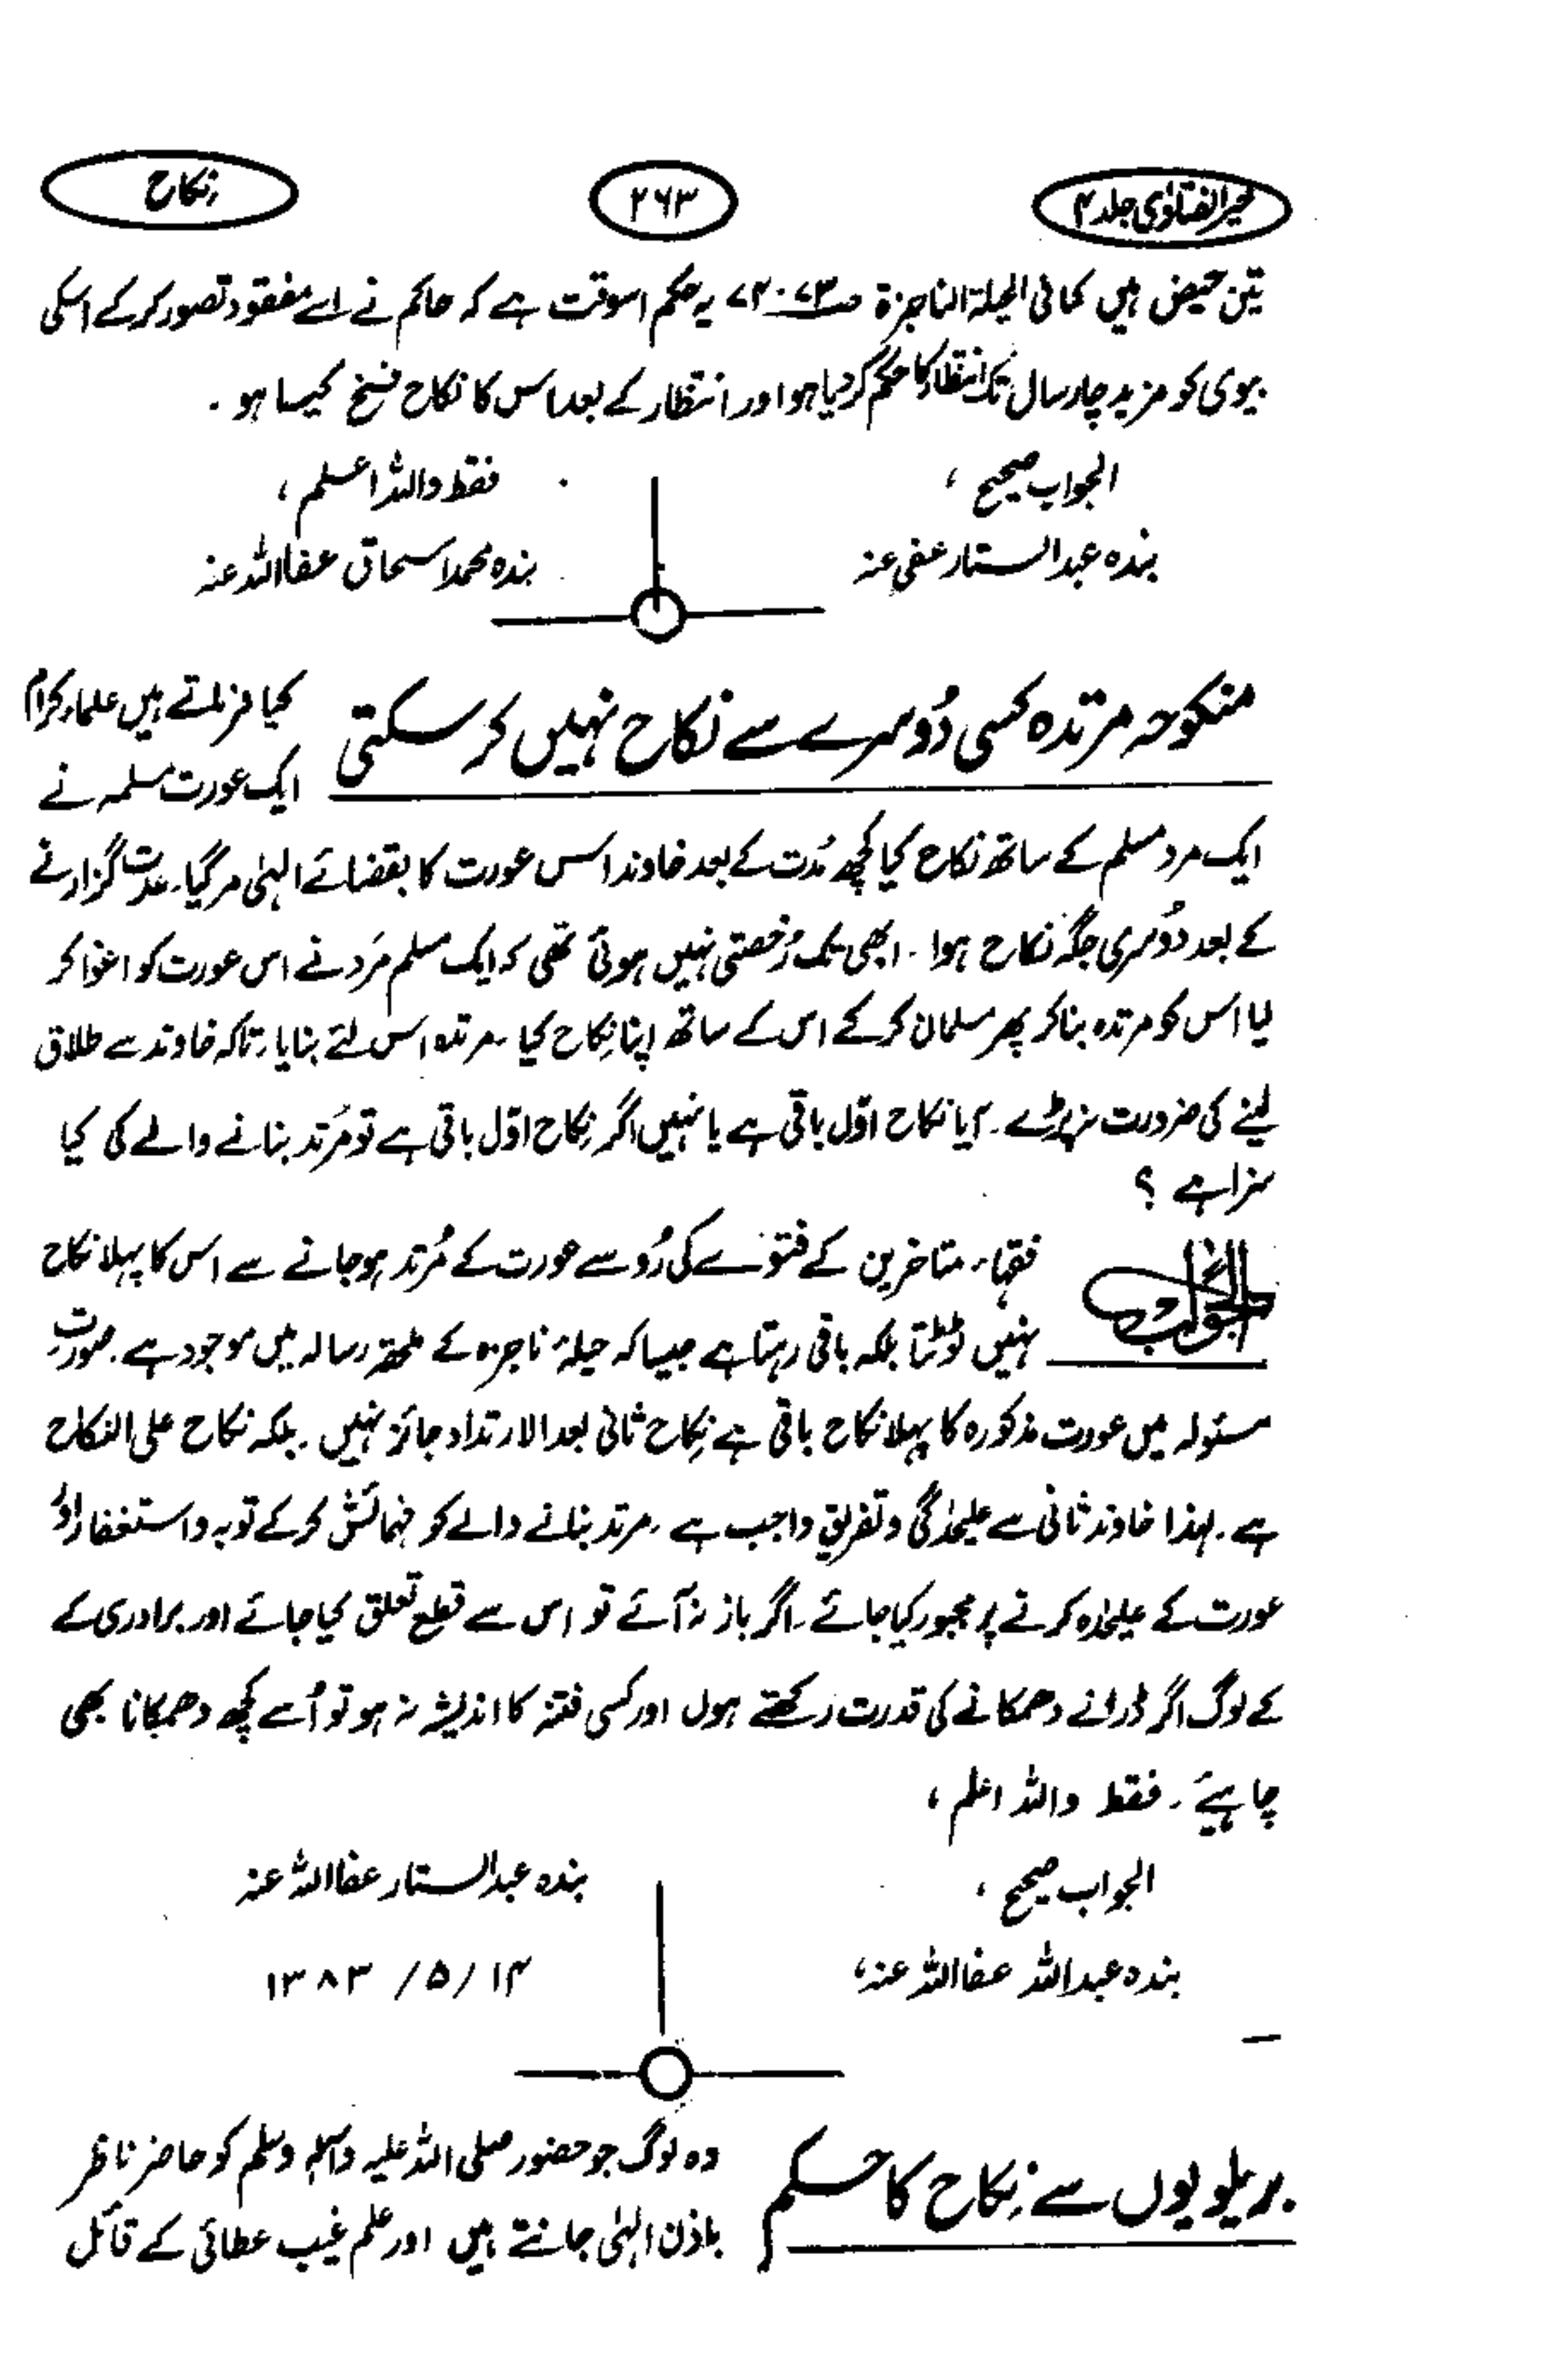 خیر الفتاویٰ جلد ۴
۲۶۳
نکاح
تین حیض ہیں کما فی الحیلۃ الناجزۃ صـ۷۳۰۷۳ یہ حکم اسوقت ہے کہ حاکم نے اسے مفقود تصور کر کے اسکی
بیوی کو مزید چار سال تک انتظار کا حکم کر دیا ہو اور انتظار کے بعد اس کا نکاح فسخ کیسا ہو۔
الجواب صحیح ،
فقط واللہ اعلم ،
بندہ عبدالستار عفی عنہ
بندہ محمد اسحاق عفا اللہ عنہ
منکوحہ مرتدہ کسی دُوسرے سے نکاح نہیں کر سکتی
کیا فرماتے ہیں علماء کرام
ایک عورت مسلمہ نے
ایک مرد مسلم کے ساتھ نکاح کیا کچھ مُدّت کے بعد خاوند اس عورت کا بقضائے الٰہی مر گیا۔ عدت گزارنے
کے بعد دوُسری جگہ نکاح ہوا ۔ ابھی تک رُخصتی نہیں ہوئی تھی کہ ایک مسلم مَرد نے اس عورت کو اغوا کر
لیا اس کو مرتدہ بنا کر پھر مسلمان کر کے اس کے ساتھ اپنا نِکاح کیا ۔ مرتدہ اس لئے بنایا ۔ تاکہ خاوند سے طلاق
لینے کی ضرورت نہ پڑے ۔ کیا نکاح اوّل باقی ہے یا نہیں اگر نِکاح اوّل باقی ہے تو مُرتد بنانے والے کی کیا
سزا ہے ؟
الجواب
فقہاء متاخرین کے فتوے کی رُو سے عورت کے مُرتد ہو جانے سے اس کا پہلا نکاح
نہیں ٹوٹتا بلکہ باقی رہتا ہے جیسا کہ حیلۂ ناجزہ کے ملحقہ رسالہ میں موجود ہے ۔ صورت
مسئولہ میں عورت مذکورہ کا پہلا نکاح باقی ہے نِکاح ثانی بعد الارتداد جائز نہیں ۔ بلکہ نکاح علی النکاح
ہے ۔ لہذا خاوند ثانی سے علیحدگی و تفریق واجب ہے ۔ مرتد بنانے والے کو فہمائش کر کے توبہ و استغفار اوُر
عورت کے علیحدہ کرنے پر مجبور کیا جائے ۔ اگر باز نہ آئے تو اس سے قطع تعلق کیا جائے اور برادری کے
کے لوگ اگر ڈرانے دھمکانے کی قدرت رکھتے ہوں اور کسی فتنہ کا اندیشہ نہ ہو تو اُسے کچھ دھمکانا بھی
چاہیئے ۔ فقط واللہ اعلم ،
الجواب صحیح ،
بندہ عبدالستار عفا اللہ عنہ
بندہ عبداللہ عفا اللہ عنہ،
۱۴ /۵/ ۱۳۸۳
بریلویوں سے نِکاح کا حکم
وہ لوگ جو حضور صلی اللہ علیہ وآلہٖ وسلم کو حاضر ناظر
باذن الٰہی جانتے ہیں اور علم غیب عطائی کے قائل